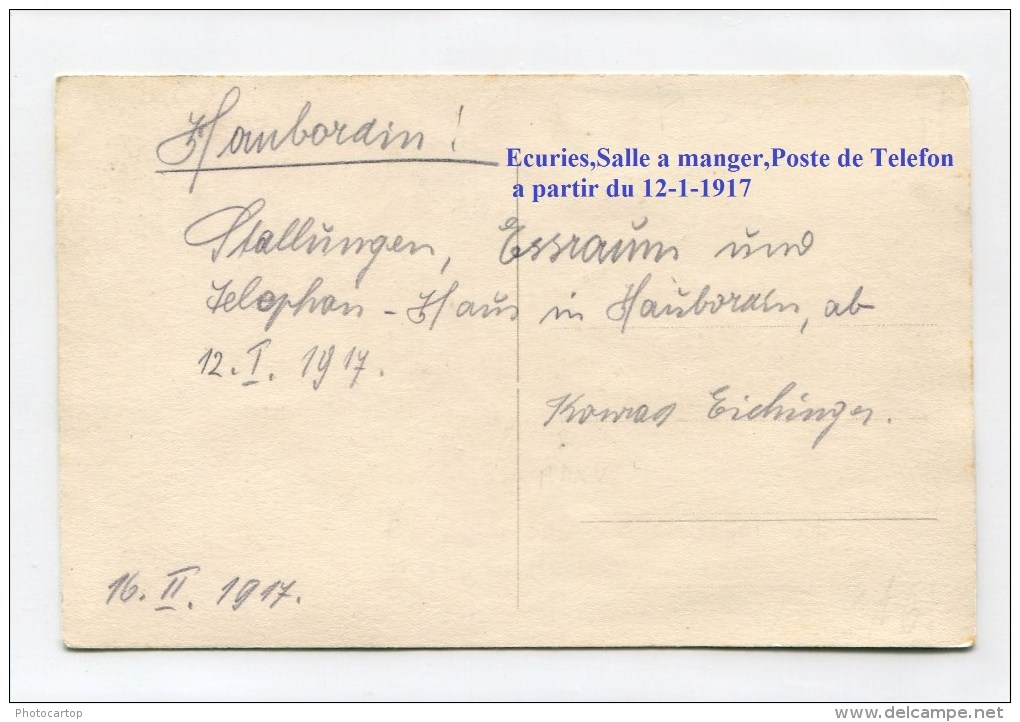 Haubordin!
Ecuries,Salle a manger,Poste de Telefon
a partir du 12-1-1917
Stallungen, Essraum und
Telephon - Haus in Haubordin, ab
12. I. 1917.
Konrad Eichinger.
16. II. 1917.
Photocartop
delcampe.net